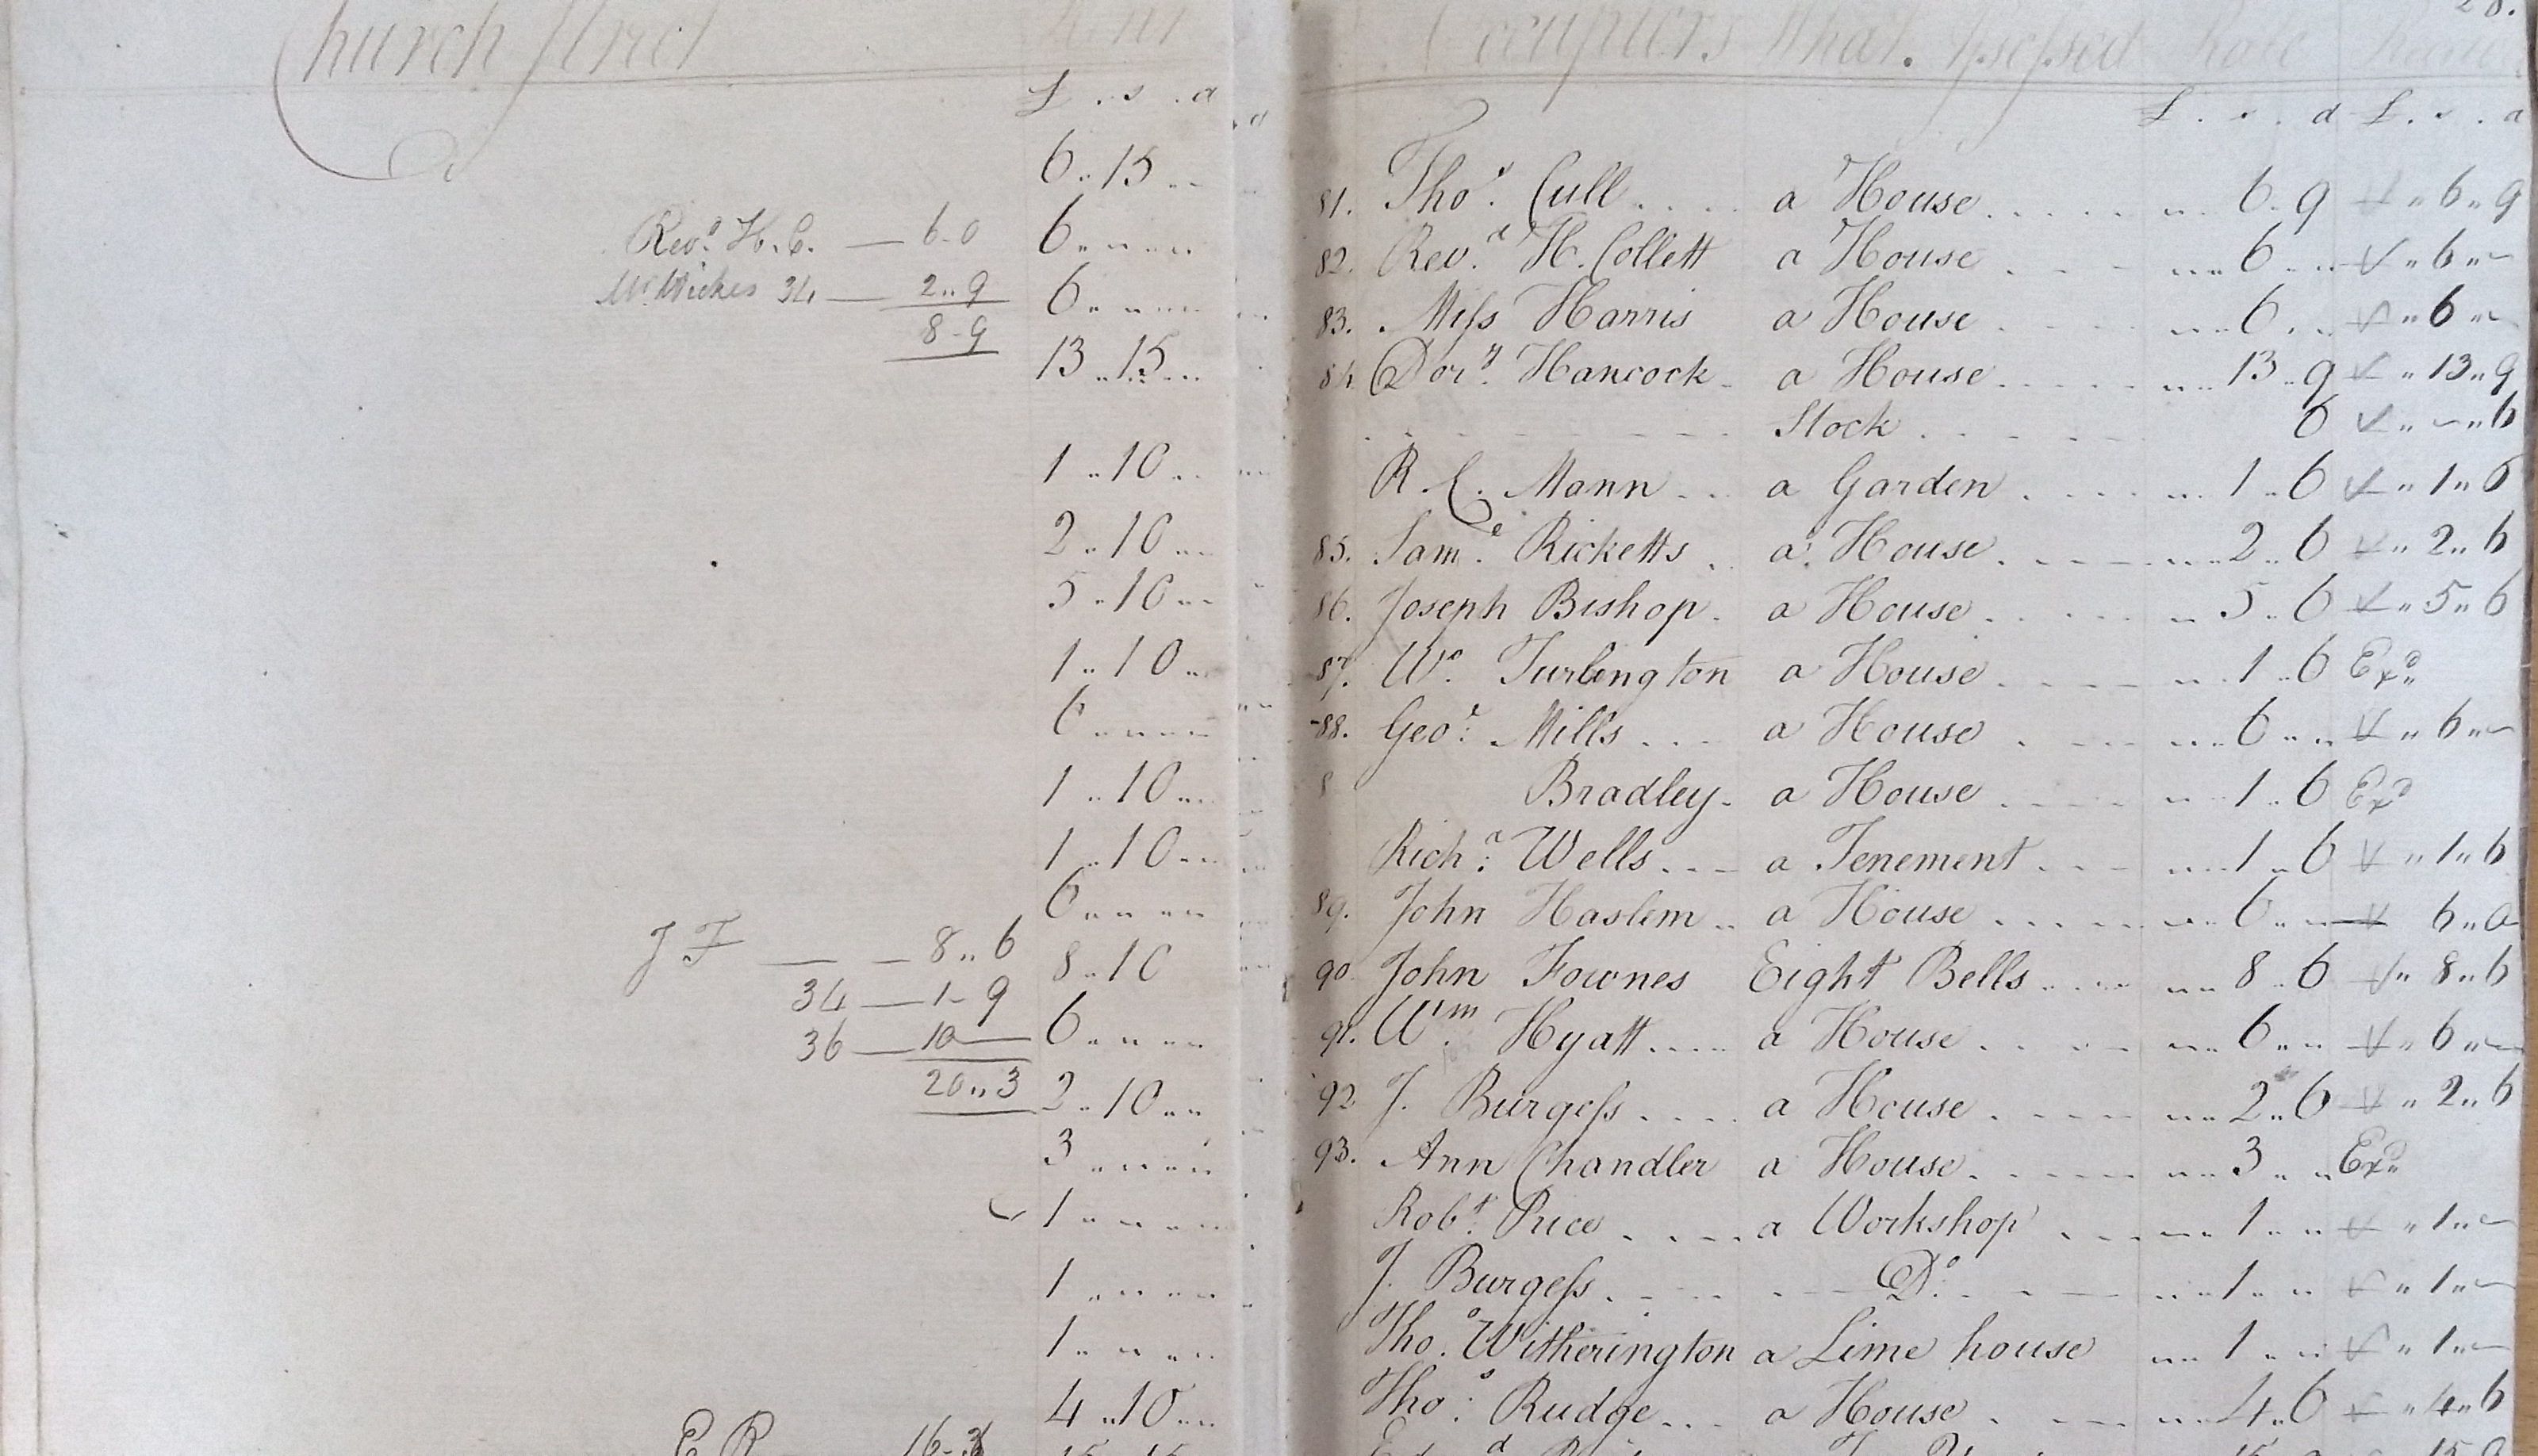 Church Street
£ . s . d
6 .. 15 ..
Rev.d H. C. — 6 - 0 6 .. .. ..
Mr Wickes 34 — 2 .. 9 6 .. .. ..
8 - 9
13 .. 15 ..
1 .. 10 ..
2 .. 10 ..
5 .. 10 ..
1 .. 10 ..
6 .. .. ..
1 .. 10 ..
1 .. 10 ..
6 .. .. ..
J F — — 8 .. 6 8 .. 10
34 — 1 - 9
36 — 10 — 6 .. .. ..
20 .. 3 2 .. 10 ..
3 .. .. ..
1 .. .. ..
1 .. .. ..
1 .. .. ..
4 .. 10 ..
E R 16 - 3
28.
Occupiers What. Assessed Rate
£ . s . d £ . s . d
81. Tho.s Cull a House .. 6 .. 9 .. 6 .. 9
82. Rev.d H. Collett a House .. 6 .. .. 6 ..
83. Miss Harris a House .. 6 .. .. 6 ..
84. Dor.y Hancock a House .. 13 .. 9 .. 13 .. 9
Stock 6 .. .. 6
R. C. Mann a Garden .. 1 .. 6 .. 1 .. 6
85. Sam.l Ricketts a House .. 2 .. 6 .. 2 .. 6
86. Joseph Bishop a House .. 5 .. 6 .. 5 .. 6
87. W.m Turlington a House .. 1 .. 6 Ex.d
88. Geo.e Mills a House .. 6 .. .. 6 ..
8 Bradley a House .. 1 .. 6 Ex.d
Rich.d Wells a Tenement .. 1 .. 6 .. 1 .. 6
89. John Haslem a House .. 6 .. 6 .. 0
90. John Fownes Eight Bells .. 8 .. 6 .. 8 .. 6
91. W.m Hyatt a House .. 6 .. .. 6 ..
92 J. Burgess a House .. 2 .. 6 .. 2 .. 6
93. Ann Chandler a House .. 3 .. Ex.d
Rob.t Price a Workshop .. 1 .. .. 1 ..
J. Burgess D.o .. 1 .. .. 1 ..
Tho.s Witherington a Lime house .. 1 .. .. 1 ..
Tho.s Rudge a House .. 4 .. 6 .. 4 .. 6